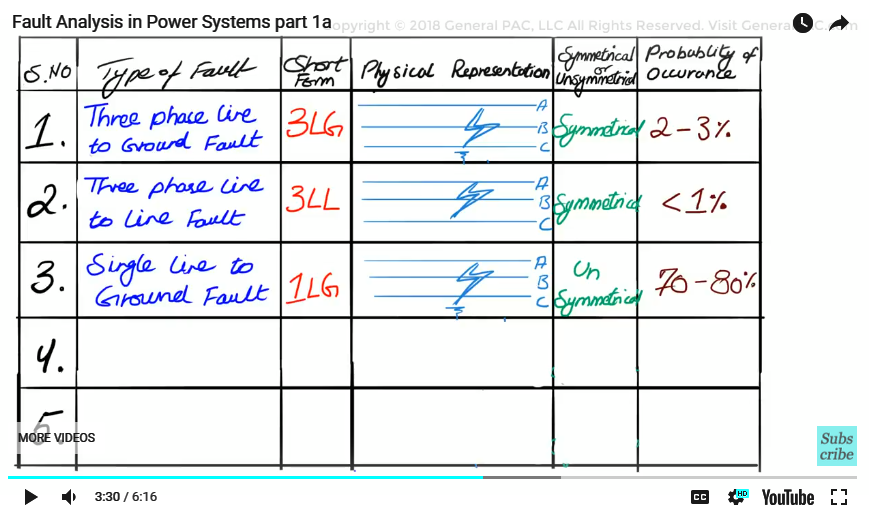 Fault Analysis in Power Systems part 1a
opyright © 2018 General PAC, LLC All Rights Reserved. Visit Genera C.com
S.NO Type of Fault Short Form Physical Representation Symmetrical or Unsymmetrical Probablity of Occurance
1. Three phase line to Ground Fault 3LG A B C Symmetrical 2-3%
2. Three phase line to Line Fault 3LL A B C Symmetrical <1%
3. Single line to Ground Fault 1LG A B C Un Symmetrical 70-80%
4.
5.
MORE VIDEOS
Subs
cribe
3:30 / 6:16
CC HD YouTube